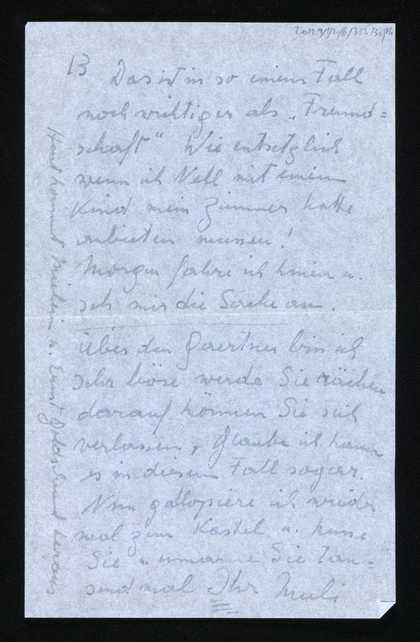 13 Das ist in so einem Fall
noch wichtiger als „Freund=
schaft“ Wie entsetzlich
wenn ich Nell mit einem
Kind mein Zimmer hatte
anbieten muessen!
Morgen fahre ich hinein u.
seh mir die Sache an.
Über den Gaertner bin ich
sehr böse werde Sie rächen
darauf können Sie sich
verlassen, glaube ich kann
es in diesem Fall sogar.
Nun galloppiere ich wieder
mal zum Kastel u. küsse
Sie u umarme Sie tau=
send mal Ihr
Heut kommt u. Ernst heraus